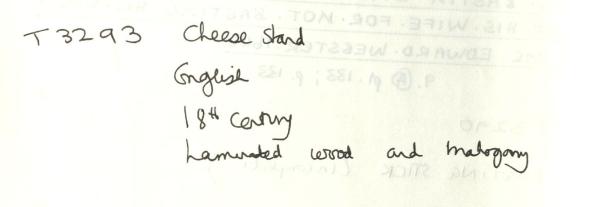 T3293 Cheese Stand
English
18th Century
Laminated wood and Mahogany